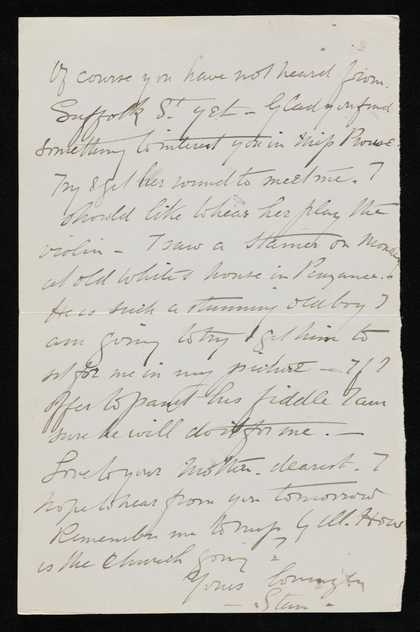 Of course you have not heard from
Suffolk St yet - Glad you find
something to interest you in Miss Prowse.
Try & get her round to meet me. I
should like to hear her play the
violin - I saw a Stainer on Monday
at old White's house in Penzance.
He is such a stunning old boy I
am going to try & get him to
sit for me in my picture - If I
offer to paint his fiddle I am
sure he will do it for me. -
Love to your Mother. dearest. I
hope to hear from you tomorrow
Remember me to Miss Gill. How
is the Church going?
Yours lovingly
- Stan -